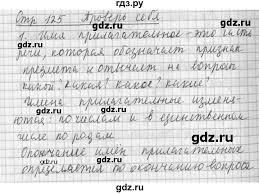 гдз.ру
Стр. 125 Проверь себя
1. Имя прилагательное - это часть
речи, которая обозначает признак
предмета и отвечает на вопросы
какой? какая? какое? какие?
Имена прилагательные изменя-
ются: по числам и в единственном
числе по родам.
Окончание имён прилагательных
определяется по окончанию вопроса
gdz.ru
gdz.ru
gdz.ru
gdz.ru
gdz.ru
gdz.ru